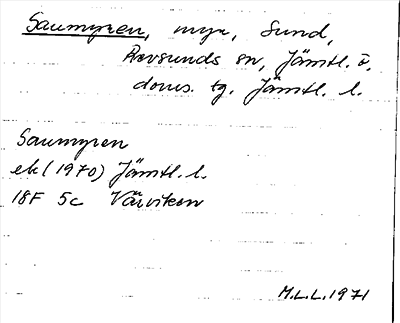 Saumyren, myr, Sund,
Revsunds sn, Jämtl. ö.
doms. tg. Jämtl. l.
Saumyren
ek (1970) Jämtl. l.
18F 5c Växviken
M.L.L. 1971